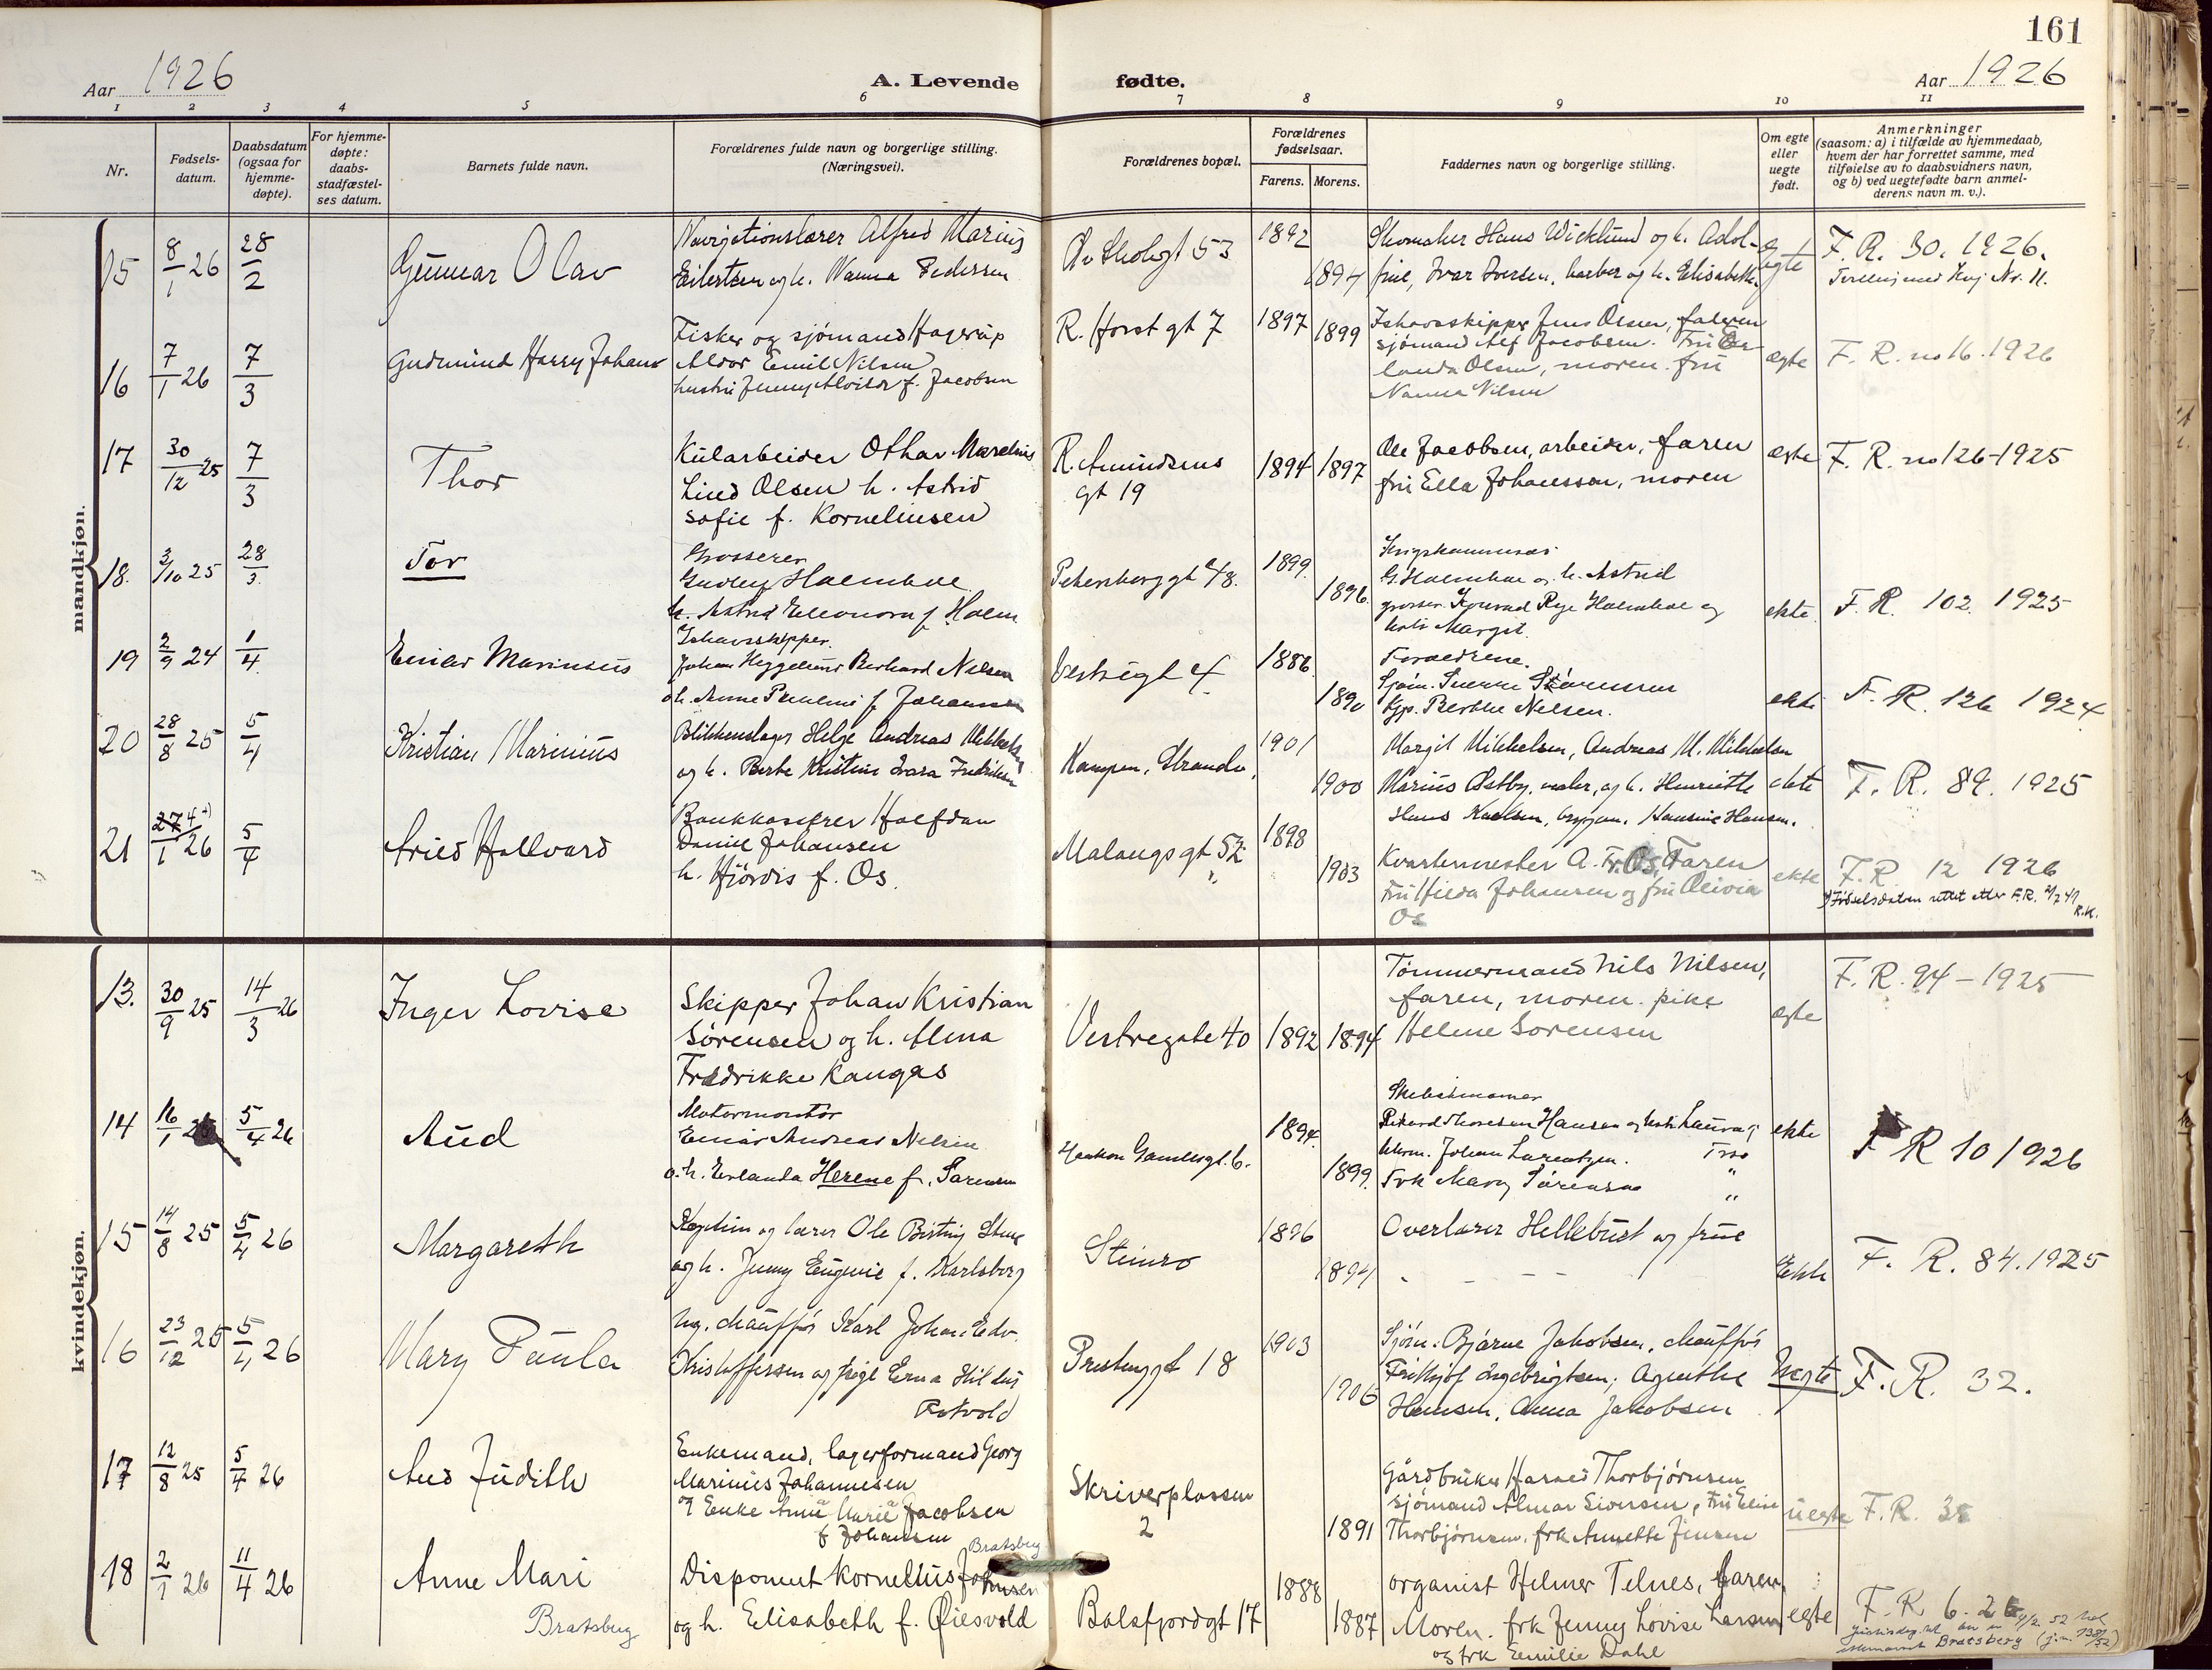 161
Aar 1926
A. Levende
fødte.
Aar 1926
1 2 3 4 5 6 7 8 9 10 11
Nr.
Fødsels-
datum.
Daabsdatum
(ogsaa for
hjemme-
døpte).
For hjemme-
døpte:
daabs-
stadfæstel-
ses datum.
Barnets fulde navn.
Forældrenes fulde navn og borgerlige stilling.
(Næringsvei).
Forældrenes bopæl.
Forældrenes
fødselsaar.
Farens. Morens.
Faddernes navn og borgerlige stilling.
Om egte
eller
uegte
født.
Anmerkninger
(saasom: a) i tilfælde av hjemmedaab,
hvem der har forrettet samme, med
tilføielse av to daabsvidners navn,
og b) ved uegtefødte barn anmel-
derens navn m. v.).
mandkjøn.
15 8/1 26 28/2 Gunnar Olav
Navigationslærer Alfred Marius
Eilertsen og h. Nanna Pedersen
53 1892 1894
Skomaker Hans Wicklund og h. Adol-
fine, Ivar Iversen, barber og h. Elisabeth.
egte
F. R. 30. 1926.
Tvilling med Kvj Nr. 11.
16 7/1 26 7/3 Gudmund Harry Johans
Fisker og sjömand Hagerup
Aldor Emil Nilsen
hustru Jenny f. Jacobsen
R. Horst gt 7 1897 1899
Ishavsskipper Jens Olsen, faderen
sjömand Alf Jacobsen. Fru
Olsen, moren. fru
Nanna Nilsen
ægte F. R. no 16. 1926
17 30/12 25 7/3 Thor
Kularbeider Othar Marelius
Lind Olsen h. Astrid
Sofie f. Korneliusen
R. Amundsens
gt 19
1894 1897
Ole Jacobsen, arbeider, faren
fru Ella Johansson, moren
ægte F. R. no 126-1925
18. 3/10 25 28/3. Tor
Grosserer
Holmboe
h. Astrid Elleonora f Holm
Petersborggt 48. 1899. 1896.
G. Holmboe og h. Astrid
grosser. Konrad Rye Holmboe og
Margit.
ekte. F. R. 102. 1925
19 2/9 24 1/4. Einar Marinius
Ishavsskipper.
Johan Heggelund Berhard Nilsen
Johansen
Vestregt 4. 1886 1890
Foreldrene.
Sjöm. Sverre Sörensen
Berthe Nilsen.
ekte F. R. 126 1924
20 28/8 25 5/4 Kristian Marinius
Blikkenslager Helge Andreas
og h. Berte Kristine Fredriksen
Kampen, 1901 1900
Margit Mikkelsen, Andreas M. Mikkelsen
Marius Østby, maler, og h. Henriette
Hans Karlsen, Hansine Hansen.
ekte F. R. 89. 1925
21 27 4 +) /1 26 5/4 Arild Hallvard
Bankkasserer Halfdan
Daniel Johansen
h. Hjördis f. Os.
Malangsgt 52 1898 1903
Kvartermester A. Fr. Os, Faren
Fru Hilda Johansen og fru Olivia
Os
ekte F. R. 12 1926
+) Fødselsdatoen rettet etter F.R.
kvindekjøn.
13. 30/9 25 14/3 26 Inger Lovise
Skipper Johan Kristian
Sörensen og h. Alma
Fredrikke Kangas
Vestregate 40 1892 1894
Tömmermand Nils Nilsen,
faren, moren. pike
Helene Sorensen
ægte
F. R. 94 – 1925
14 16/1 5/4 26 Aud
Motormontör
Einar Andreas Nilsen
o. h. Erlanda Herene f. Sörensen
Haakon 6. 1894. 1899.
Rikard Thoresen Hansen og Laura,
Johan Lorentzen.
Frk Mary Sörensen
ekte F R 10 1926
15 14/8 25 5/4 26 Margareth
Kaptein og lærer Ole
og h. Jenny Eugenie f. Karlsborg
Steinro 1896 1894
Overlærer Hellebust og frue
Ekte F. R. 84. 1925
16 23/12 25 5/4 26 Mary Paula
Ug. chauffør Karl Johan Edv.
Kristoffersen og pige Erna
Prestenggt 18 1903 1906
Sjöm. Bjarne Jakobsen, chauffør
Fritjof Ingebrigtsen, Agnethe
Hansen, Anna Jakobsen
Uegte F. R. 32.
17 12/8 25 5/4 26 Aud Judith
Enkemand, lagerformand Georg
Marinius Johannesen
og Enke Anna Marie Jacobsen
f Johansen
Skriverplassen
2
1891
Gårdbruker Harald Thorbjörnsen
sjömand Almar Sivertsen, Fru Elise
Thorbjörnsen. frk Annette Jensen
uegte F. R.
18 2/1 26 11/4 26 Anne Mari
Bratsberg
Bratsberg
Disponent Kornelius Johnsen
og h. Elisabeth f. Øiesvold
Balsfjordgt 17 1888 1887
organist Helmer Telnes, faren,
Moren. frk Jenny Lovise Larsen
og frk Emilie Dahl
egte F. R. 6. 26
Bratsberg